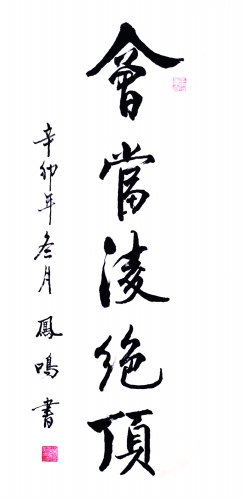 會當淩絶頂
辛卯年叁月鳳鳴書